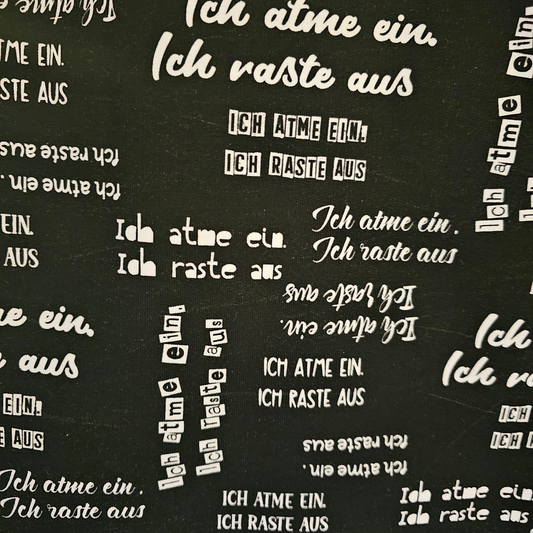 Ich atme ein.
Ich atme ein.
Ich raste aus
ATME EIN.
RASTE AUS
ICH ATME EIN.
ICH RASTE AUS
Ich atme ein.
Ich raste aus
Ich atme ein.
EIN.
AUS
Ich atme ein.
Ich raste aus
Ich atme ein.
Ich raste aus
Ich atme ein.
Ich raste aus
ein.
aus
Ich atme ein.
Ich raste aus
ICH ATME EIN.
ICH RASTE AUS
Ich
Ich
EIN.
AUS
ICH
ICH
Ich atme ein.
Ich raste aus
Ich atme ein.
Ich raste aus
ICH ATME EIN.
ICH RASTE AUS
Ich atme ein.
Ich raste aus